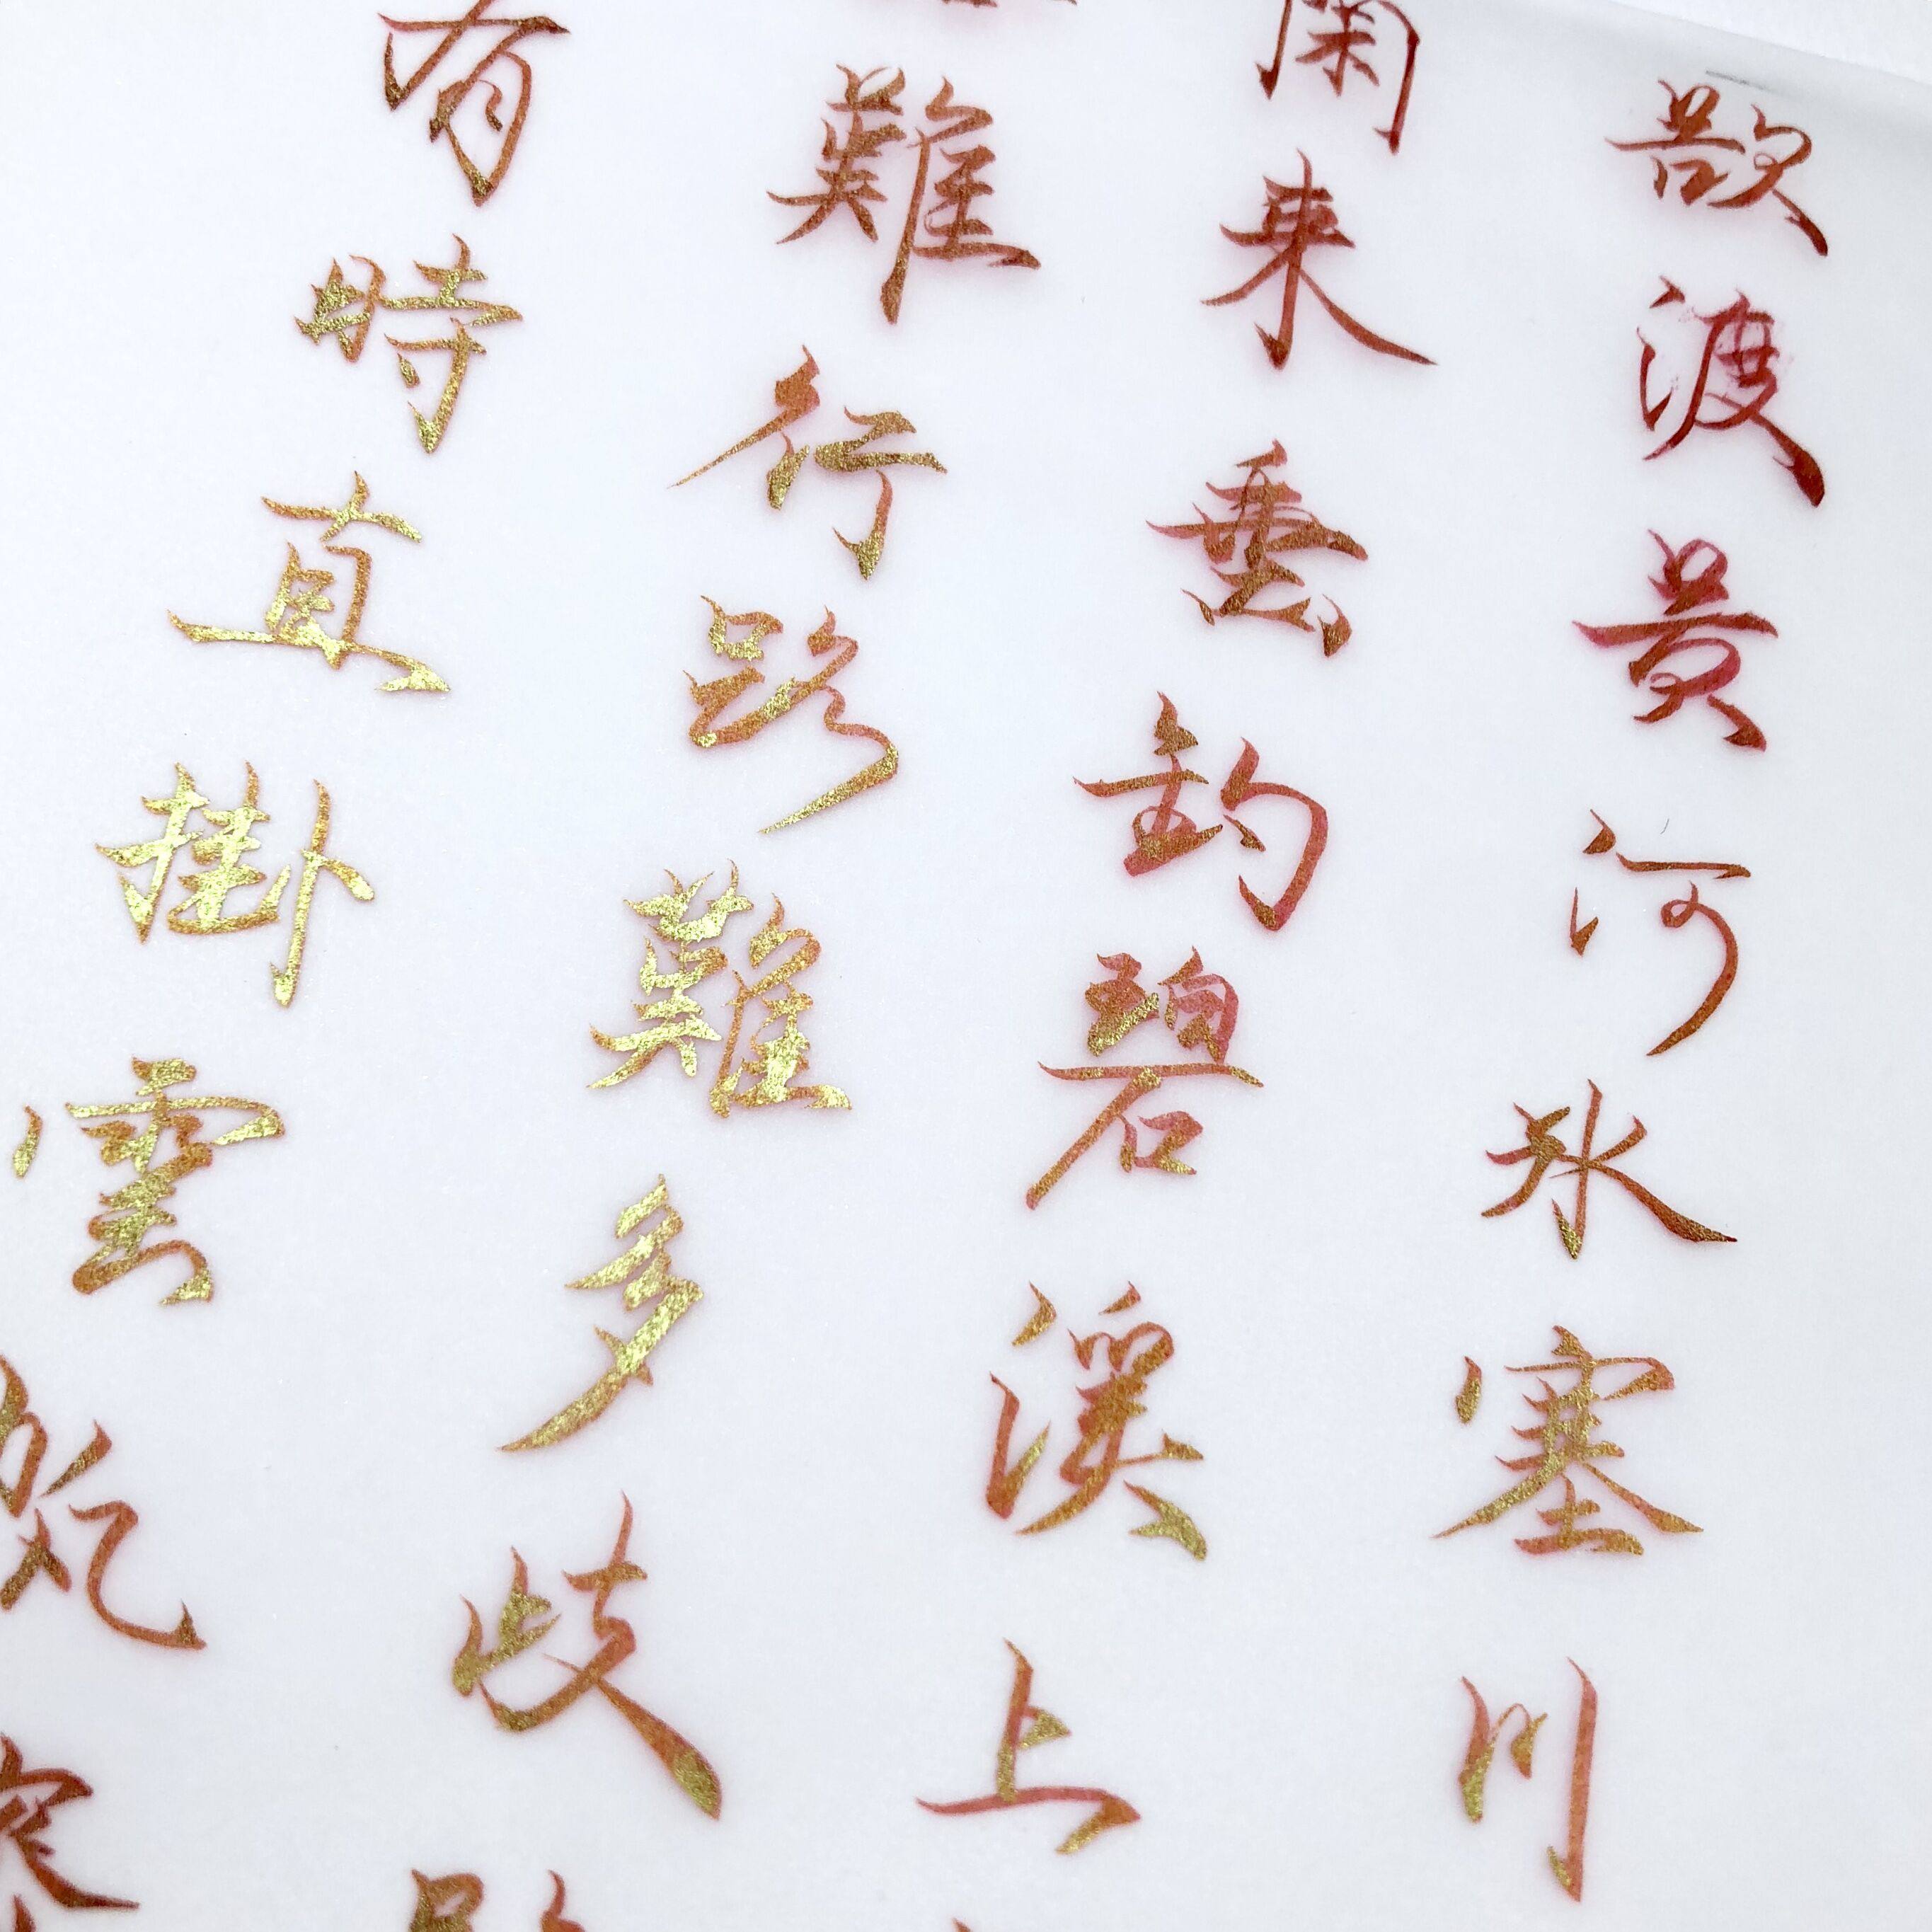 欲渡黄河冰塞川
閑来垂釣碧溪上
難行路難多歧
有時直掛雲帆